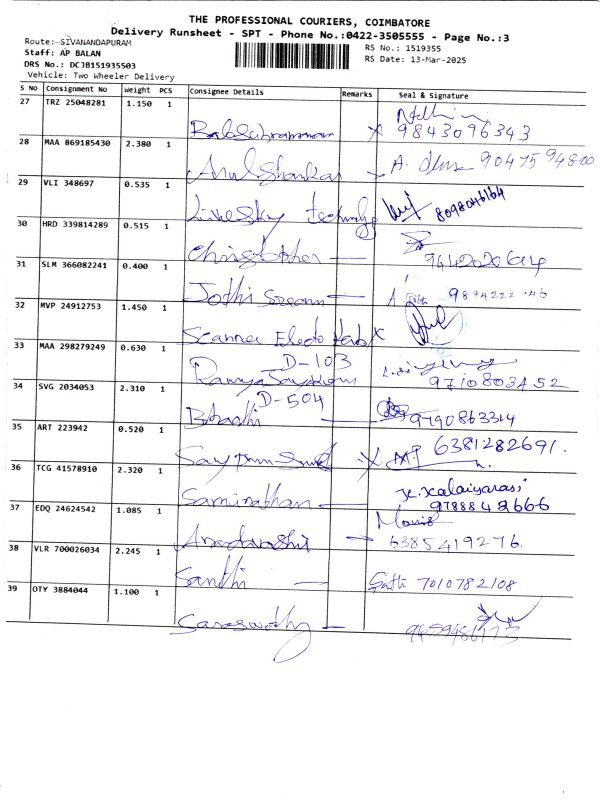 THE PROFESSIONAL COURIERS, COIMBATORE
Delivery Runsheet - SPT - Phone No.:0422-3505555 - Page No.:3
Route: SIVANANDAPURAM
Staff: AP BALAN
DRS No.: DCJB151935503
Vehicle: Two Wheeler Delivery
RS No.: 1519355
RS Date: 13-Mar-2025
S NO Consignment No Weight PCS Consignee Details Remarks Seal & Signature
27 TRZ 25048281 1.150 1
Balasubramaniam X 9843096343
28 MAA 869185430 2.380 1
Arul Shankar 9047594800
29 VLI 348697 0.535 1
Linesky Technology 8098046164
30 HRD 339814289 0.515 1
Christopher 9442020614
31 SLM 366082241 0.400 1
Jothi
32 MVP 24912753 1.450 1
Scanner
33 MAA 298279249 0.630 1
D-103
Ramya 9710803452
34 SVG 2034053 2.310 1
D-504
9790863314
35 ART 223942 0.520 1
X 6381282691.
36 TCG 41578910 2.320 1
Saminathan K. Kalaiyarasi
9788848666
37 EDQ 24624542 1.085 1
6385419276.
38 VLR 700026034 2.245 1
Santhi 7010782108
39 OTY 3884044 1.100 1
Saraswathy